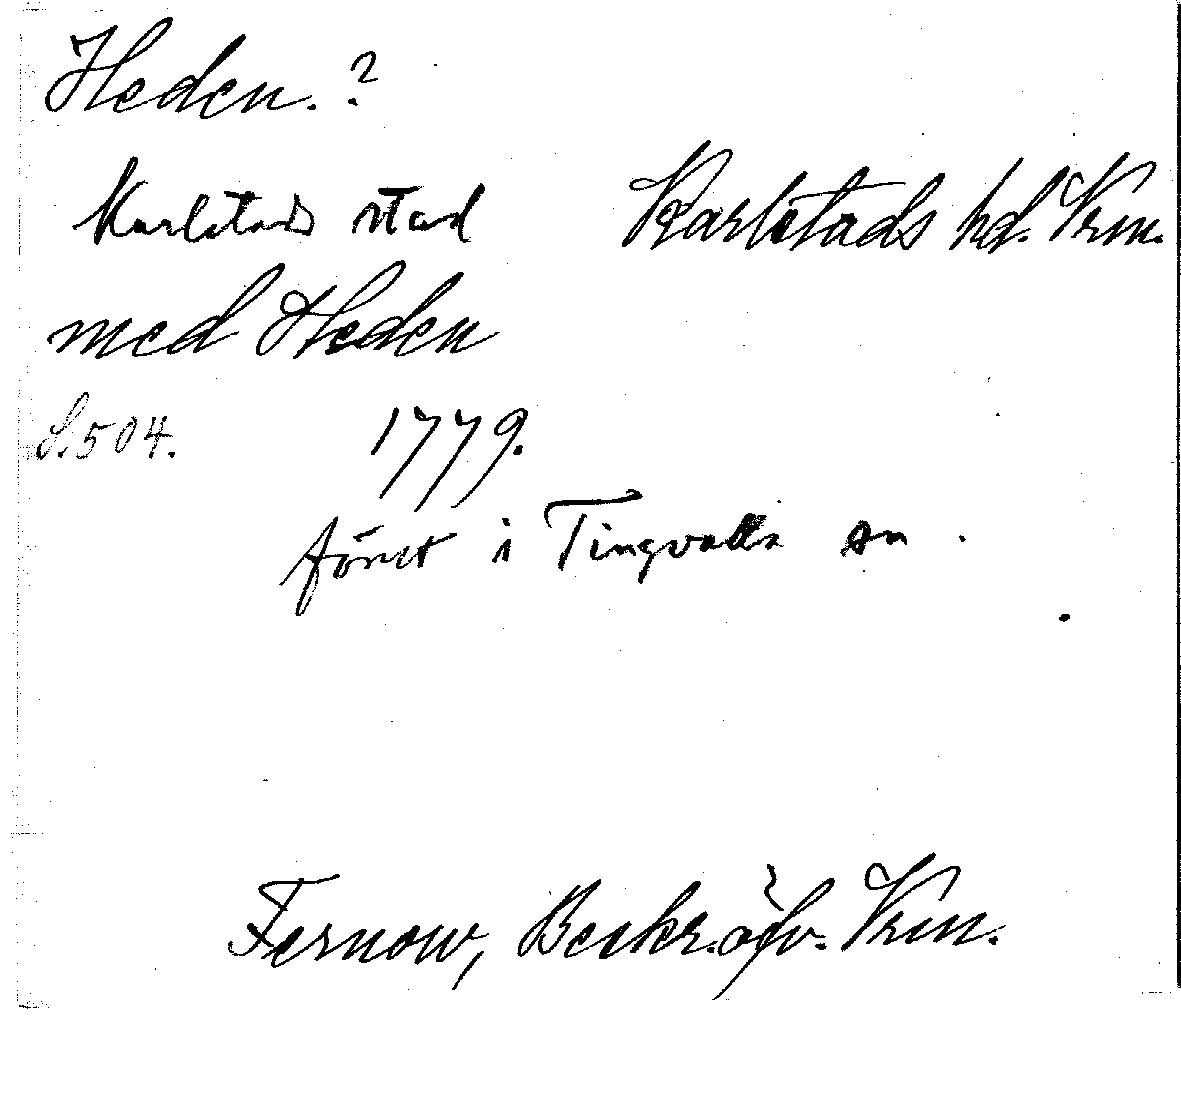 Heden. ?
Karlstads stad Karlstads hd. Vrm.
med Heden
S. 504. 1779.
förut i Tingvalla sn.
Fernow, Beskr. öfv. Vrm.